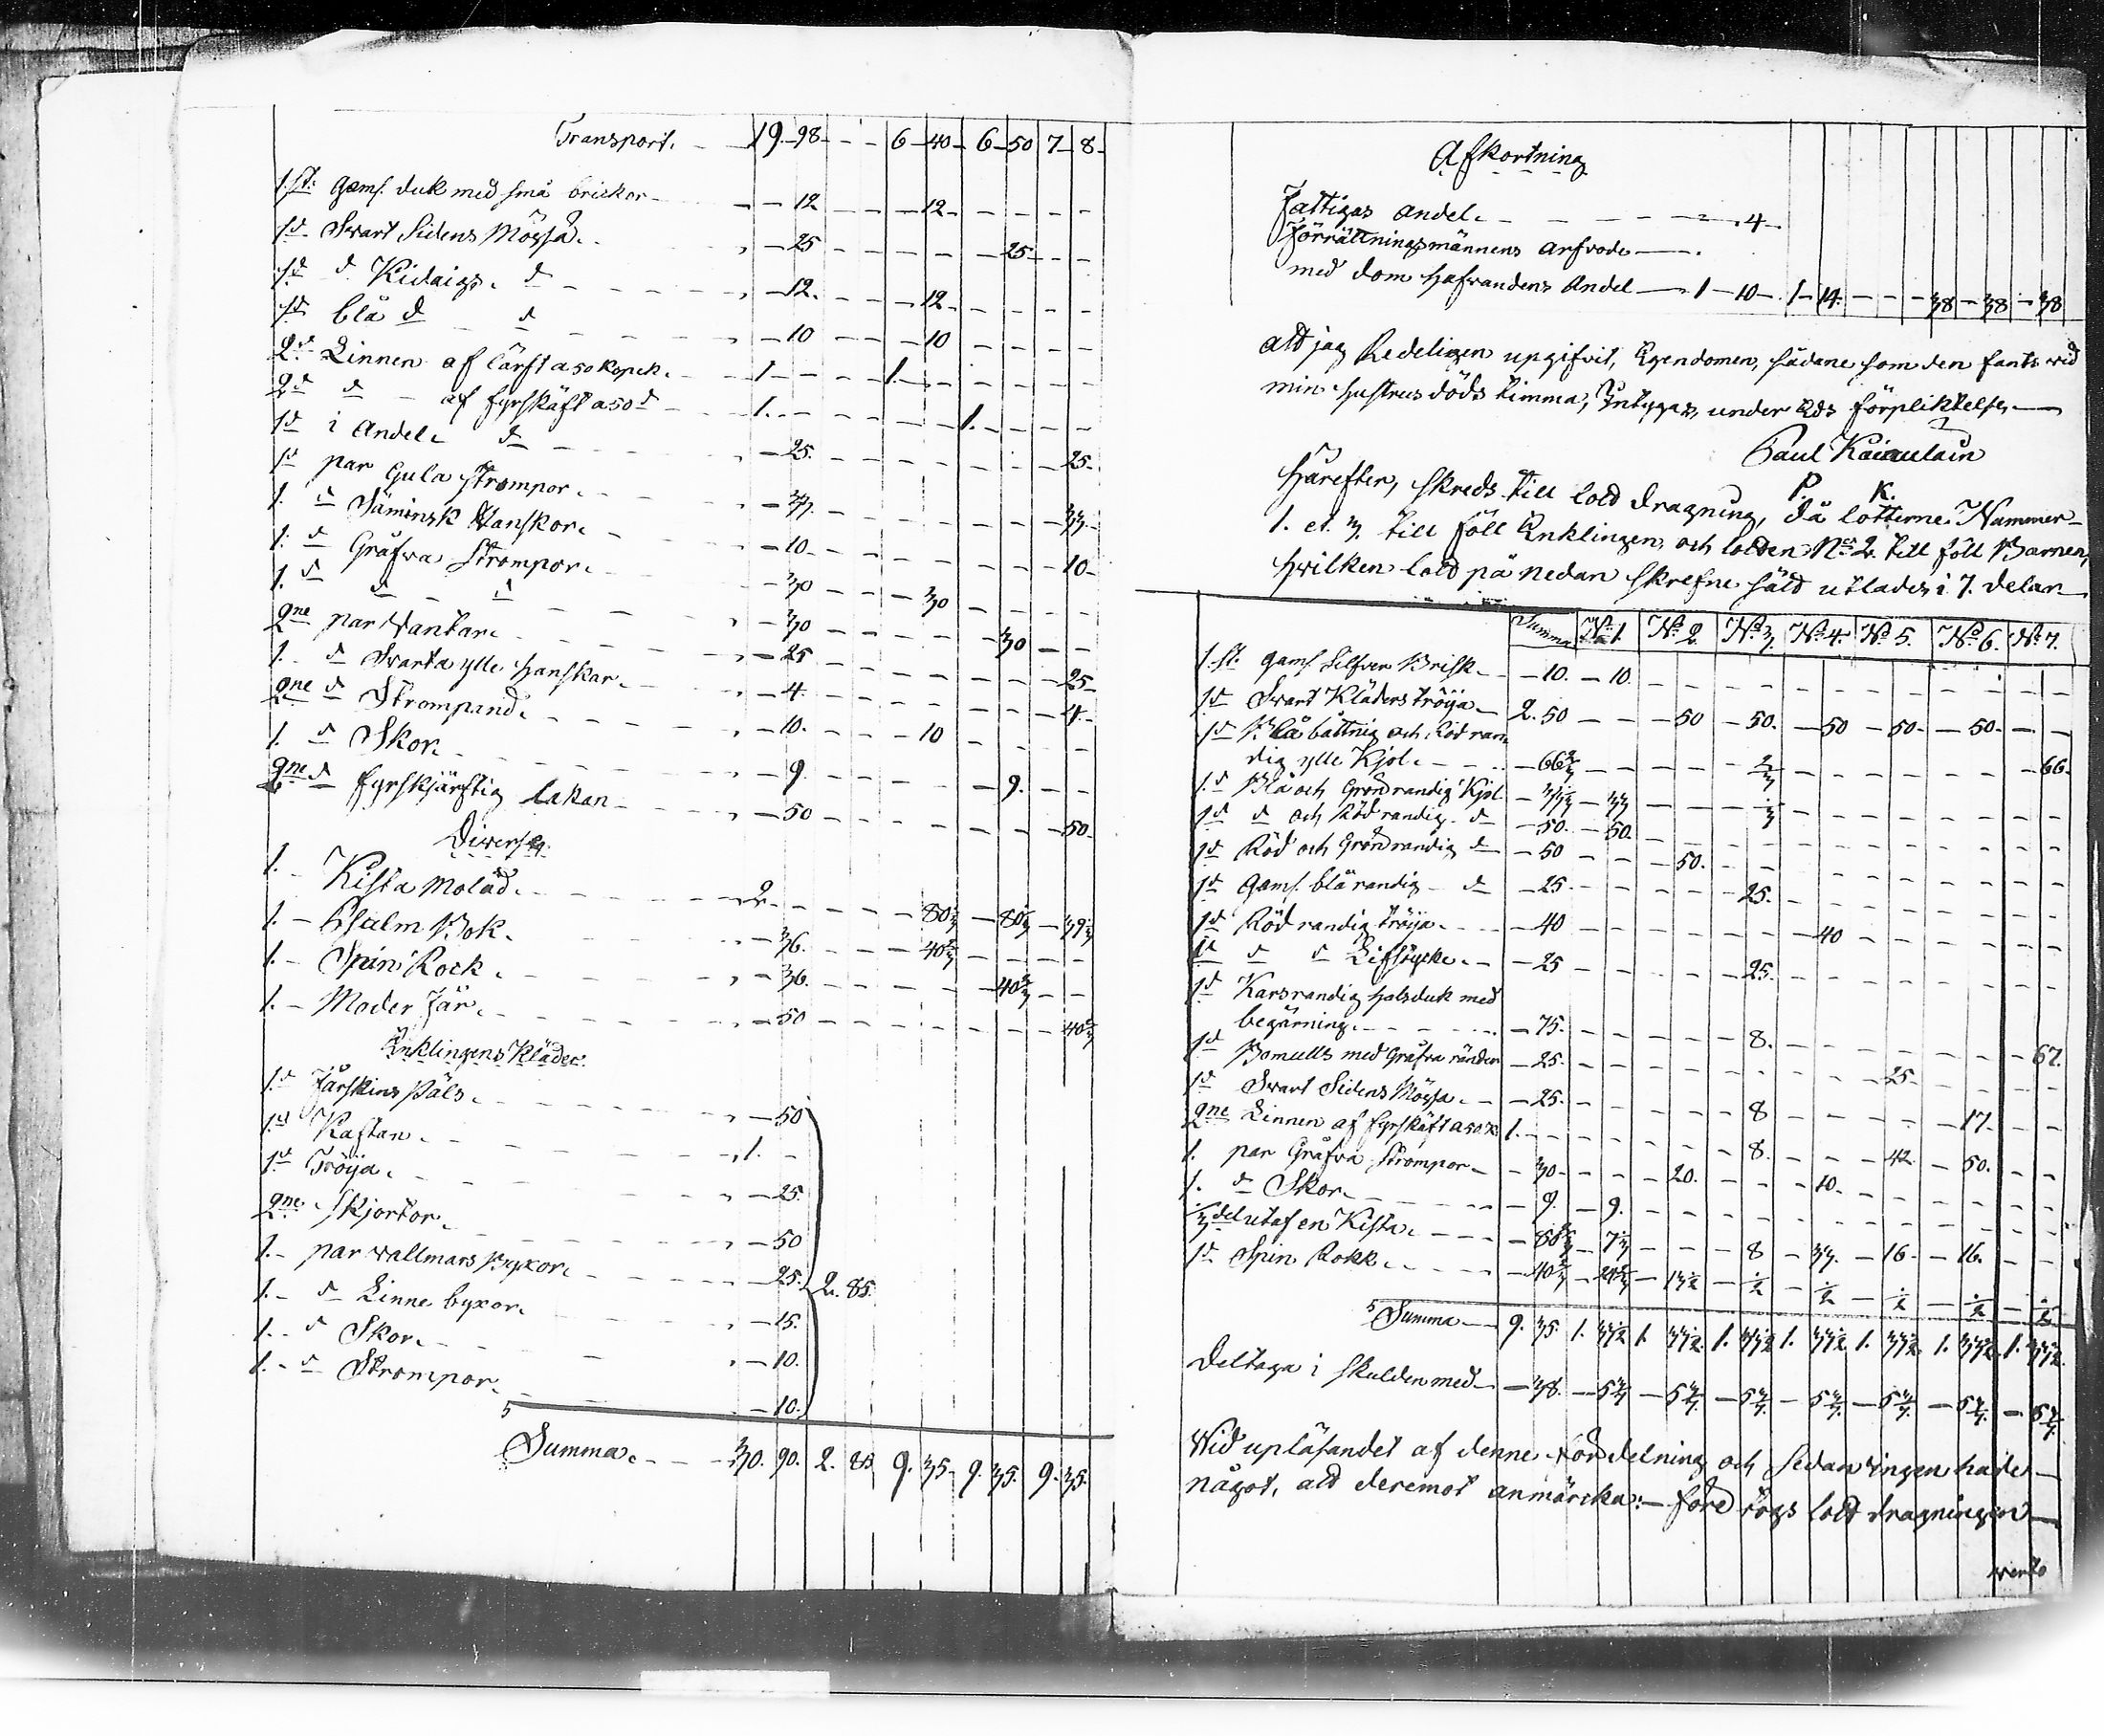 Transport. — 19. 98 — — 6 — 40 — 6 — 50 7 — 8 —
1 st: gaml. duk med små brickor — — 12 — — 12 — — — — —
1 d Swart Sidens Mössa — 25 — — — — — 25 — — —
1 d d Kidaigs. d — — 12. — — — 12 — — — —
1 d blå d d — — 10 — — — 10 — — — —
2 d Linnen af lärft a 50 kopek. — 1. — — — 1. — — — —
2 d d af fyrskäft a 50 d — 1. — — — — — 1. — — —
1 d i andel d — — 25. — — — — — — 25.
1 d par Gula Strompor — — 33. — — — — — — 33. —
1. d Säminsk Hanskor — — 10 — — — — — — 10 —
1. d Gråfva Strompor — — 30 — — — 30 — — — —
1. d d d — — 30 — — — — — 30 — —
2ne par Vantar — — 25 — — — — — — 25 —
1. d Swarta ylle Hanskar — — 4. — — — — — — 4. —
2ne d Strompand — — 10. — — — 10 — — — —
1. d Skor — — 9. — — — — — 9. — —
2ne d fyrskjärftig lakan — — 50 — — — — — — 50 —
Diverse
1. Kista Molåd. — 2 — — — — 80 1/3 — 80 1/3 — 39 1/3
1. — Psalm Bok. — 36. — — — 40 2/3 — — — —
1. — Spin Rock — — 36. — — — — — 40 2/3 — —
1. — Moder Får — — 50 — — — — — — 40 2/3
Enklingens Kläder.
1. d Fårskins Päls — — 50
1. d Kaftan — 1. —
1 d Tröija — — 25.
2ne Skjortor — — 50
1. — par wallmars Byxor — — 25. 2. 85.
1. — d Linne byxor — — 15.
1. — d Skor — — 10.
1. — d Strompor — — 10.
Summa. — 30. 90. 2. 85 9. 35 — 9. 35. 9. 35.
Afkortning
Fattigas andel. — — — — 4 —
Förrättningsmännens arfvode —
med dom Hafvandens Andel — 1 — 10 — 1 — 14. — — — 38 — 38 — 38
att jag Redeligen upgifvit, Egendomen, sådane som den fants wid
min Hustrus döds timma, Intygas, under Eds förpliktelse —
Paul Kainulain
P. K.
Härefter, skreds till lott dragning, då lotterne Nummer
1. et 3. till föll Enklingen, och lotten No 2. till föll Barnen,
Hvilken lott på nedan skrefne sätt utlades i 7. delar
Summa No 1. No 2. No 3. No 4. No 5. No 6. No 7.
1. st. gaml Silfver Brisk — — 10. — 10. — — — — — —
1 d Swart Kläders tröija — 2. 50 — — — 50 — 50. — 50 — 50 — — 50. — —
1 d Blå båttnig och Röd ran
dig ylle Kjol. — — 66 2/3 — — — — 2/3 — — — — 66.
1. d Blå och Grönrandig Kjol — 33 1/3 — 33 — — 1/3 — — — —
1 d d och Röd randig d — 50. — 50. — — — — — —
1 d Röd och Grönrandig d — 50 — — — 50. — — — — —
1 d Gaml. blårandig — d — 25. — — — — 25. — — — —
1 d Röd randig tröija — — 40 — — — — — — 40 — — —
1 d d d Lifstycke. — — 25 — — — — 25. — — — —
1 d Karsrandig Halsduk med
begärning. — — — 75. — — — — 8. — — — — 67.
1 d Bomulls med Gråfva ränder — 25. — — — — — — 25. — —
1 d Swart Sidens Mössa — — 25. — — — — 8 — — — 17. —
2ne Linnen af fyrskäft a 50 K 1. — — — — 8. — — 42. — 50. —
1. par Gråfva Strompor — — 30 — — — 20. — — 10. — — —
1. d Skor — — 9. — 9. — — — — — —
1/3 del utaf en Kista — — 80 1/3 — 7 1/3 — — — 8 — 33. — 16. — 16. — —
1 d Spin Rokk — — 40 2/3 — 13 1/2 — 1/2 — 1/2 — 1/2 — 1/2 — 1/2
Summa — 9. 35. 1. 33 1/2 1. 33 1/2. 1. 33 1/2 1. 33 1/2 1. 33 1/2 1. 33 1/2 1. 33 1/2.
Deltaga i skulden med — — 38. — 5 3/7 — 5 3/7. — 5 3/7. — 5 3/7. — 5 3/7. — 5 3/7. — 5 3/7.
Wid upläsandet af denne fördelning och sedan ingen hade —
något, att deremot anmärcka: — före togs lott dragningen —